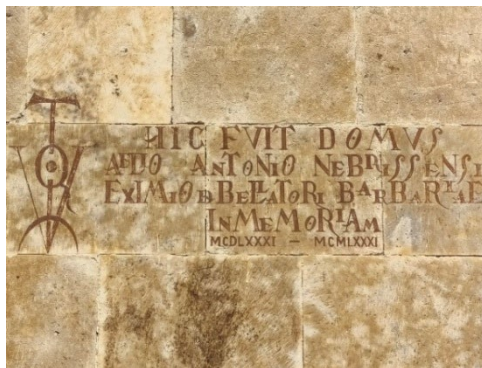 HIC FVIT DOMVS
AELIO ANTONIO NEBRISSENSI
EXIMIO DEBELLATORI BARBARIAE
IN MEMORIAM
MCDLXXXI – MCMLXXXI